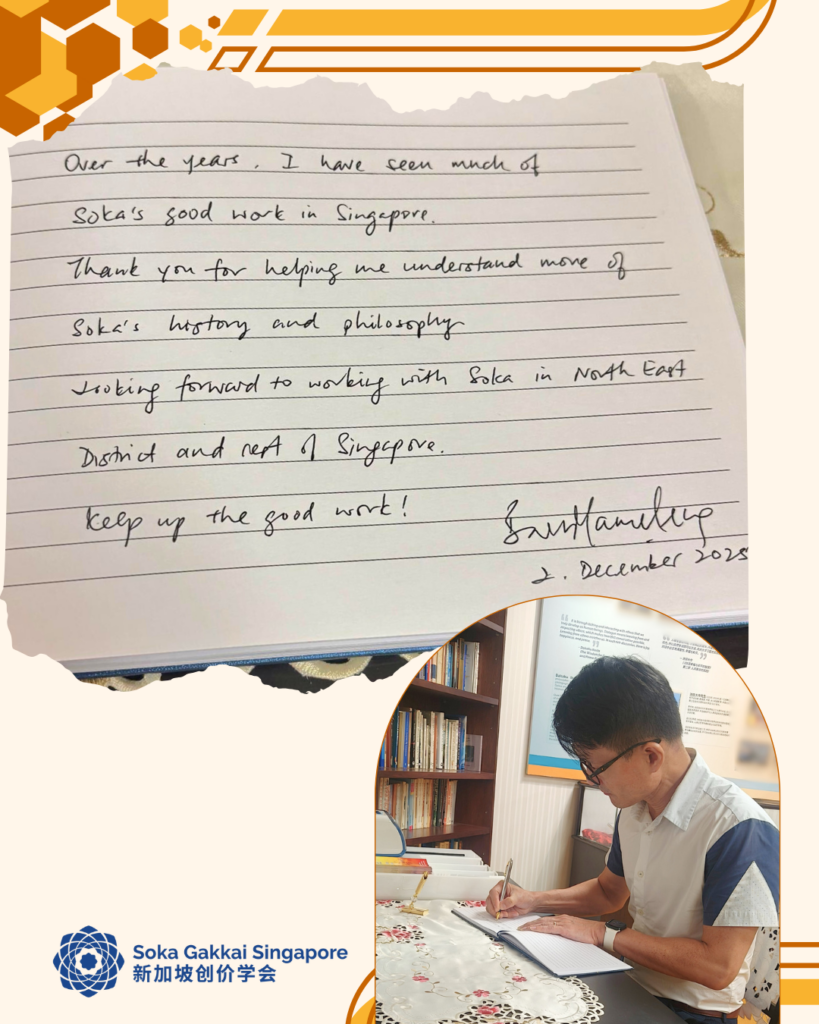 Over the years, I have seen much of
Soka's good work in Singapore.
Thank you for helping me understand more of
Soka's history and philosophy
Looking forward to working with Soka in North East
District and rest of Singapore.
Keep up the good work!
2. December 2025
Soka Gakkai Singapore
新加坡创价学会